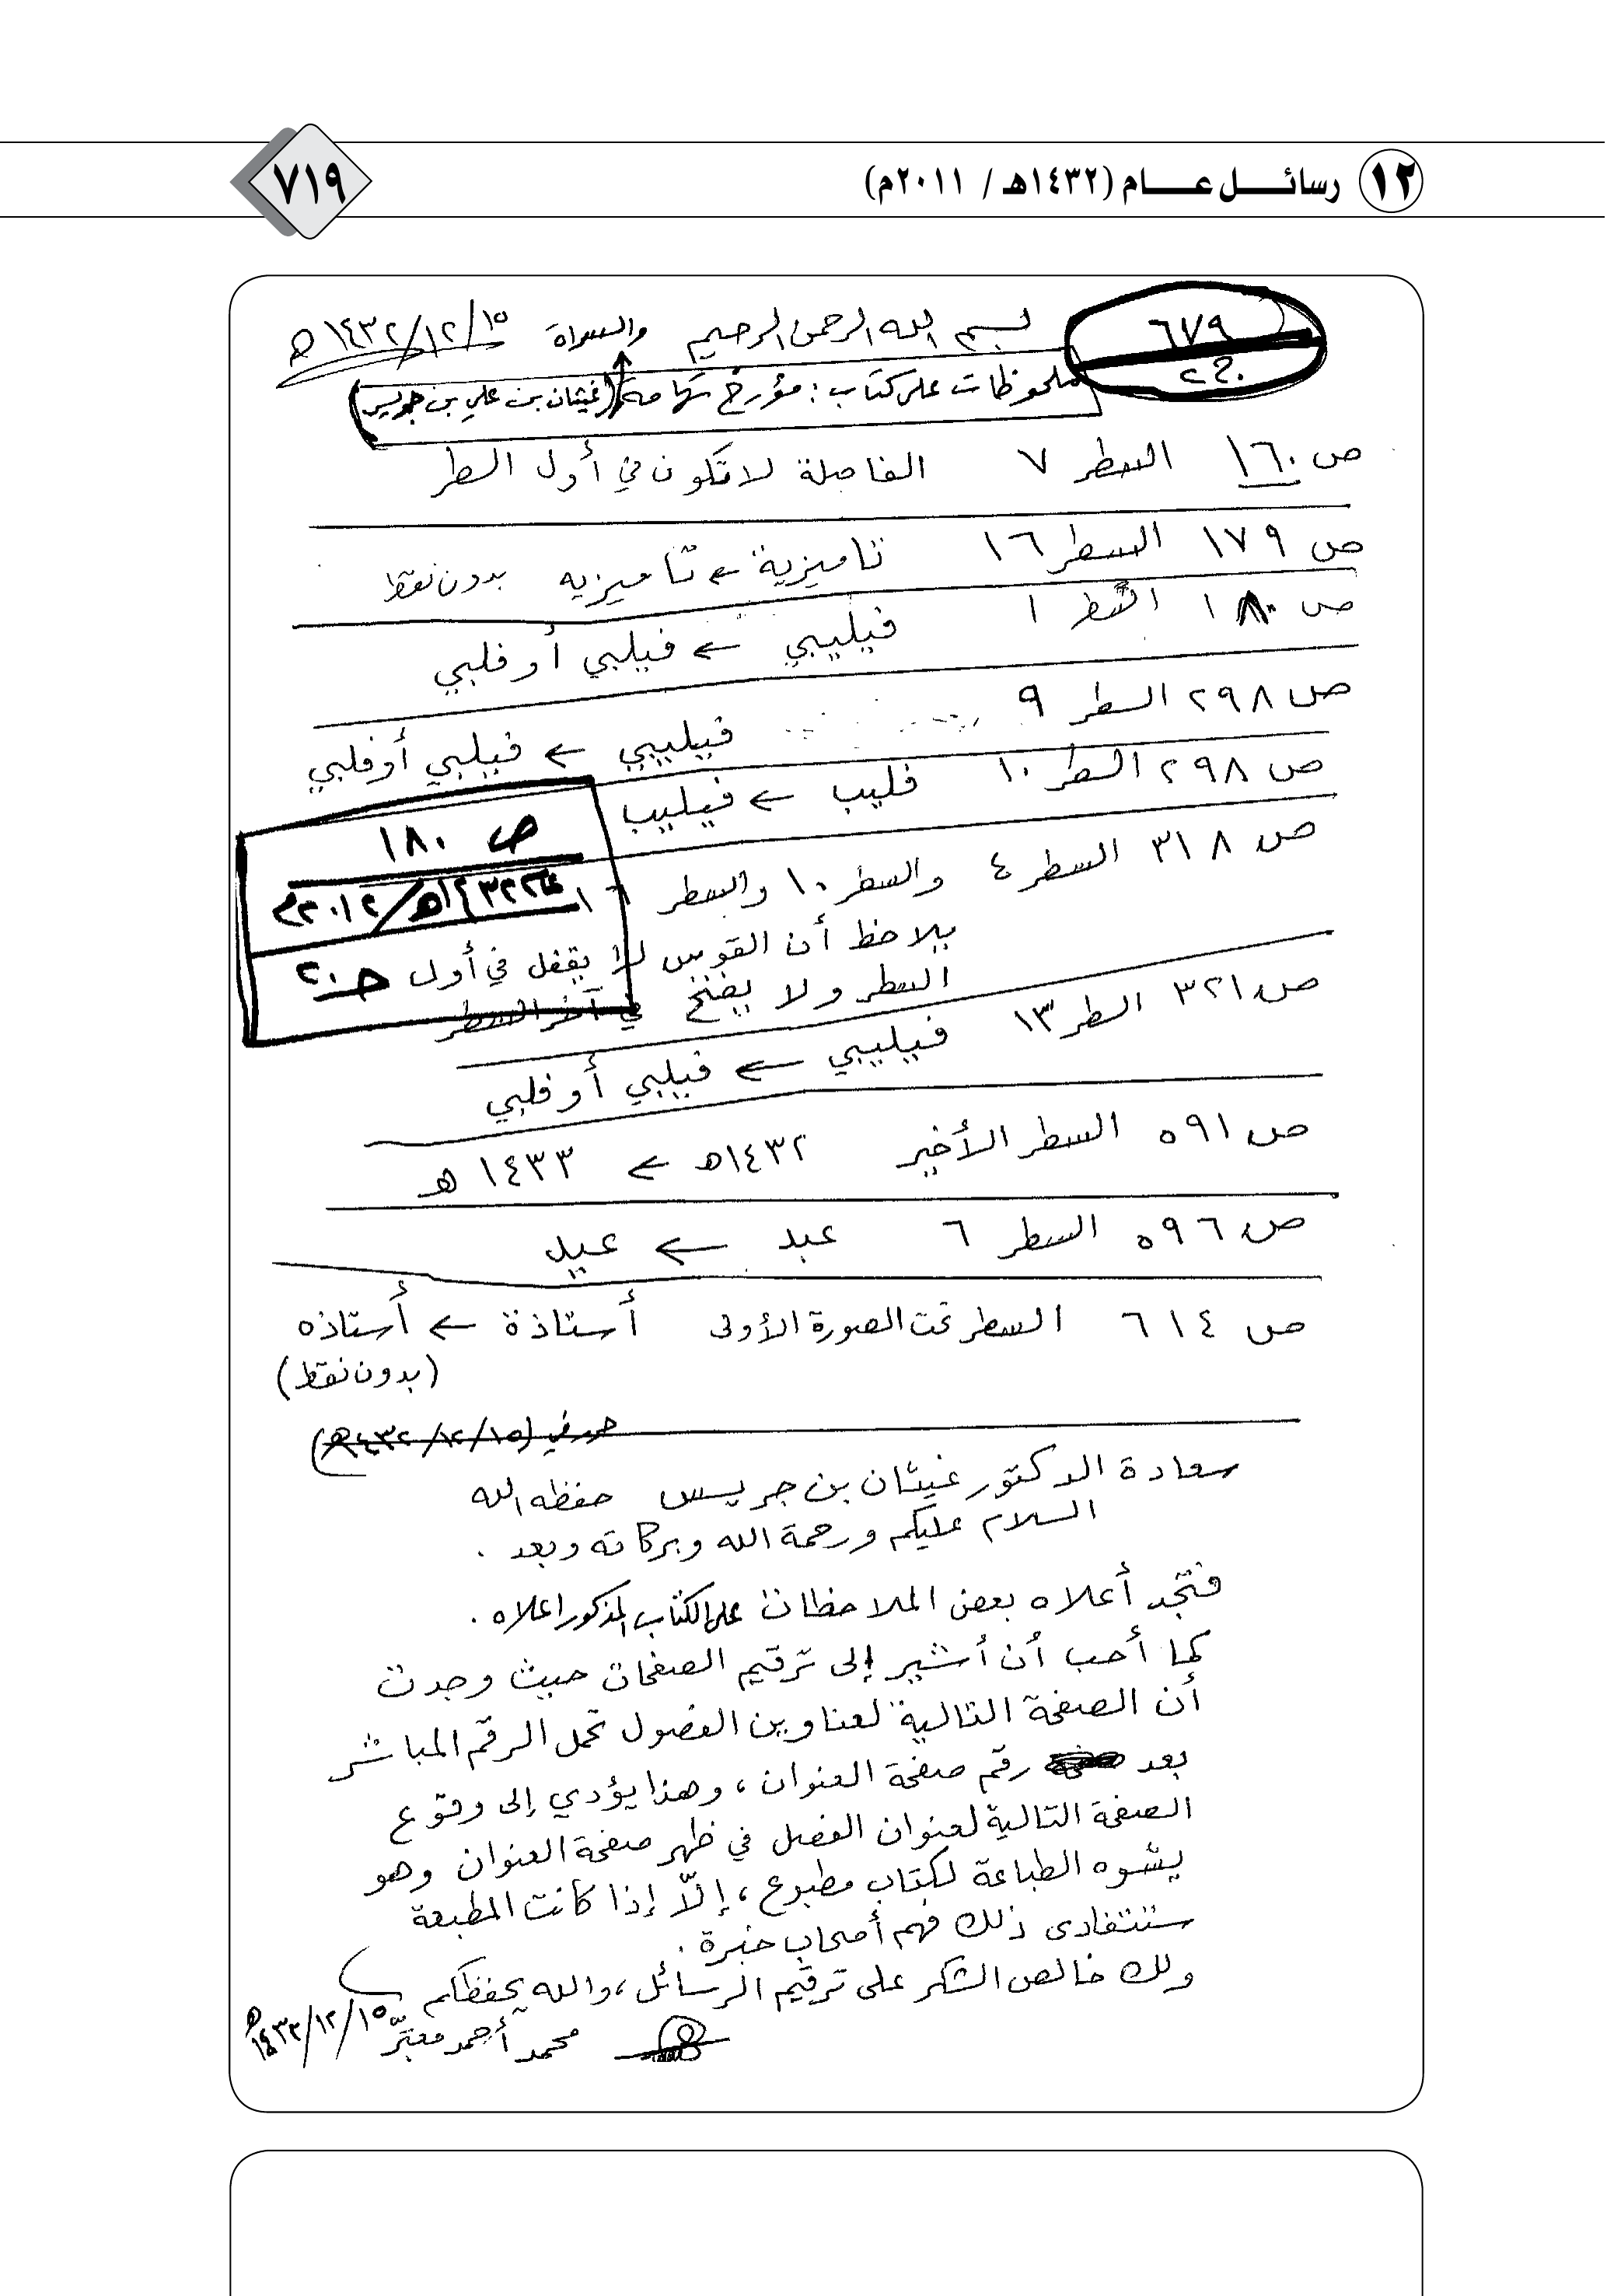 ١٢ رسائل عام (١٤٣٢هـ / ٢٠١١م)
٧١٩
٦٧٩
ج٢٠
بسم الله الرحمن الرحيم والسراة ١٤٣٢/١٢/١٥هـ
ملحوظات على كتاب : مؤرخ تهامة (غيثان بن علي بن جريس)
ص ١٦٠ السطر ٧ الفاصلة لا تكون في أول السطر
ص ١٧٩ السطر ١٦ تاميزية ← تاميزيه بدون نقط
ص ١٨٠ السطر ١ فيليبي ← فيلبي أو فلبي
ص ٢٩٨ السطر ٩ فيليبي ← فيلبي أو فلبي
ص ٢٩٨ السطر ١٠ فليب ← فيليب
ص ٣١٨ السطر ٤ والسطر ١٠ والسطر ١٦
يلاحظ أن القوس لا يقفل في أول
السطر ولا يفتح في آخر السطر
ص ١٨٠
١٤٣٢هـ/٢٠١٢م
ج٢٠
ص ٣٢١ السطر ١٣ فيليبي ← فيلبي أو فلبي
ص ٥٩١ السطر الأخير ١٤٣٢هـ ← ١٤٣٣هـ
ص ٥٩٦ السطر ٦ عبد ← عبيل
ص ٦١٤ السطر تحت الصورة الأولى أستاذة ← أستاذه
(بدون نقط)
حرر في (١٤٣٢/١٢/١٥هـ)
سعادة الدكتور غيثان بن جريس حفظه الله
السلام عليكم ورحمة الله وبركاته وبعد .
فتجد أعلاه بعض الملاحظات على الكتاب المذكور اعلاه .
كما أحب أن أشير إلى ترقيم الصفحات حيث وجدت
أن الصفحة التالية لعناوين الفصول تحمل الرقم المباشر
بعد رقم صفحة العنوان ، وهذا يؤدي إلى وقوع
الصفحة التالية لعنوان الفصل في ظهر صفحة العنوان وهو
يشوه الطباعة لكتاب مطبوع ، إلّا إذا كانت المطبعة
ستتفادى ذلك فهم أصحاب خبرة .
ولك خالص الشكر على ترقيم الرسائل ، والله يحفظكم
محمد أحمد معبّر ١٤٣٢/١٢/١٥هـ